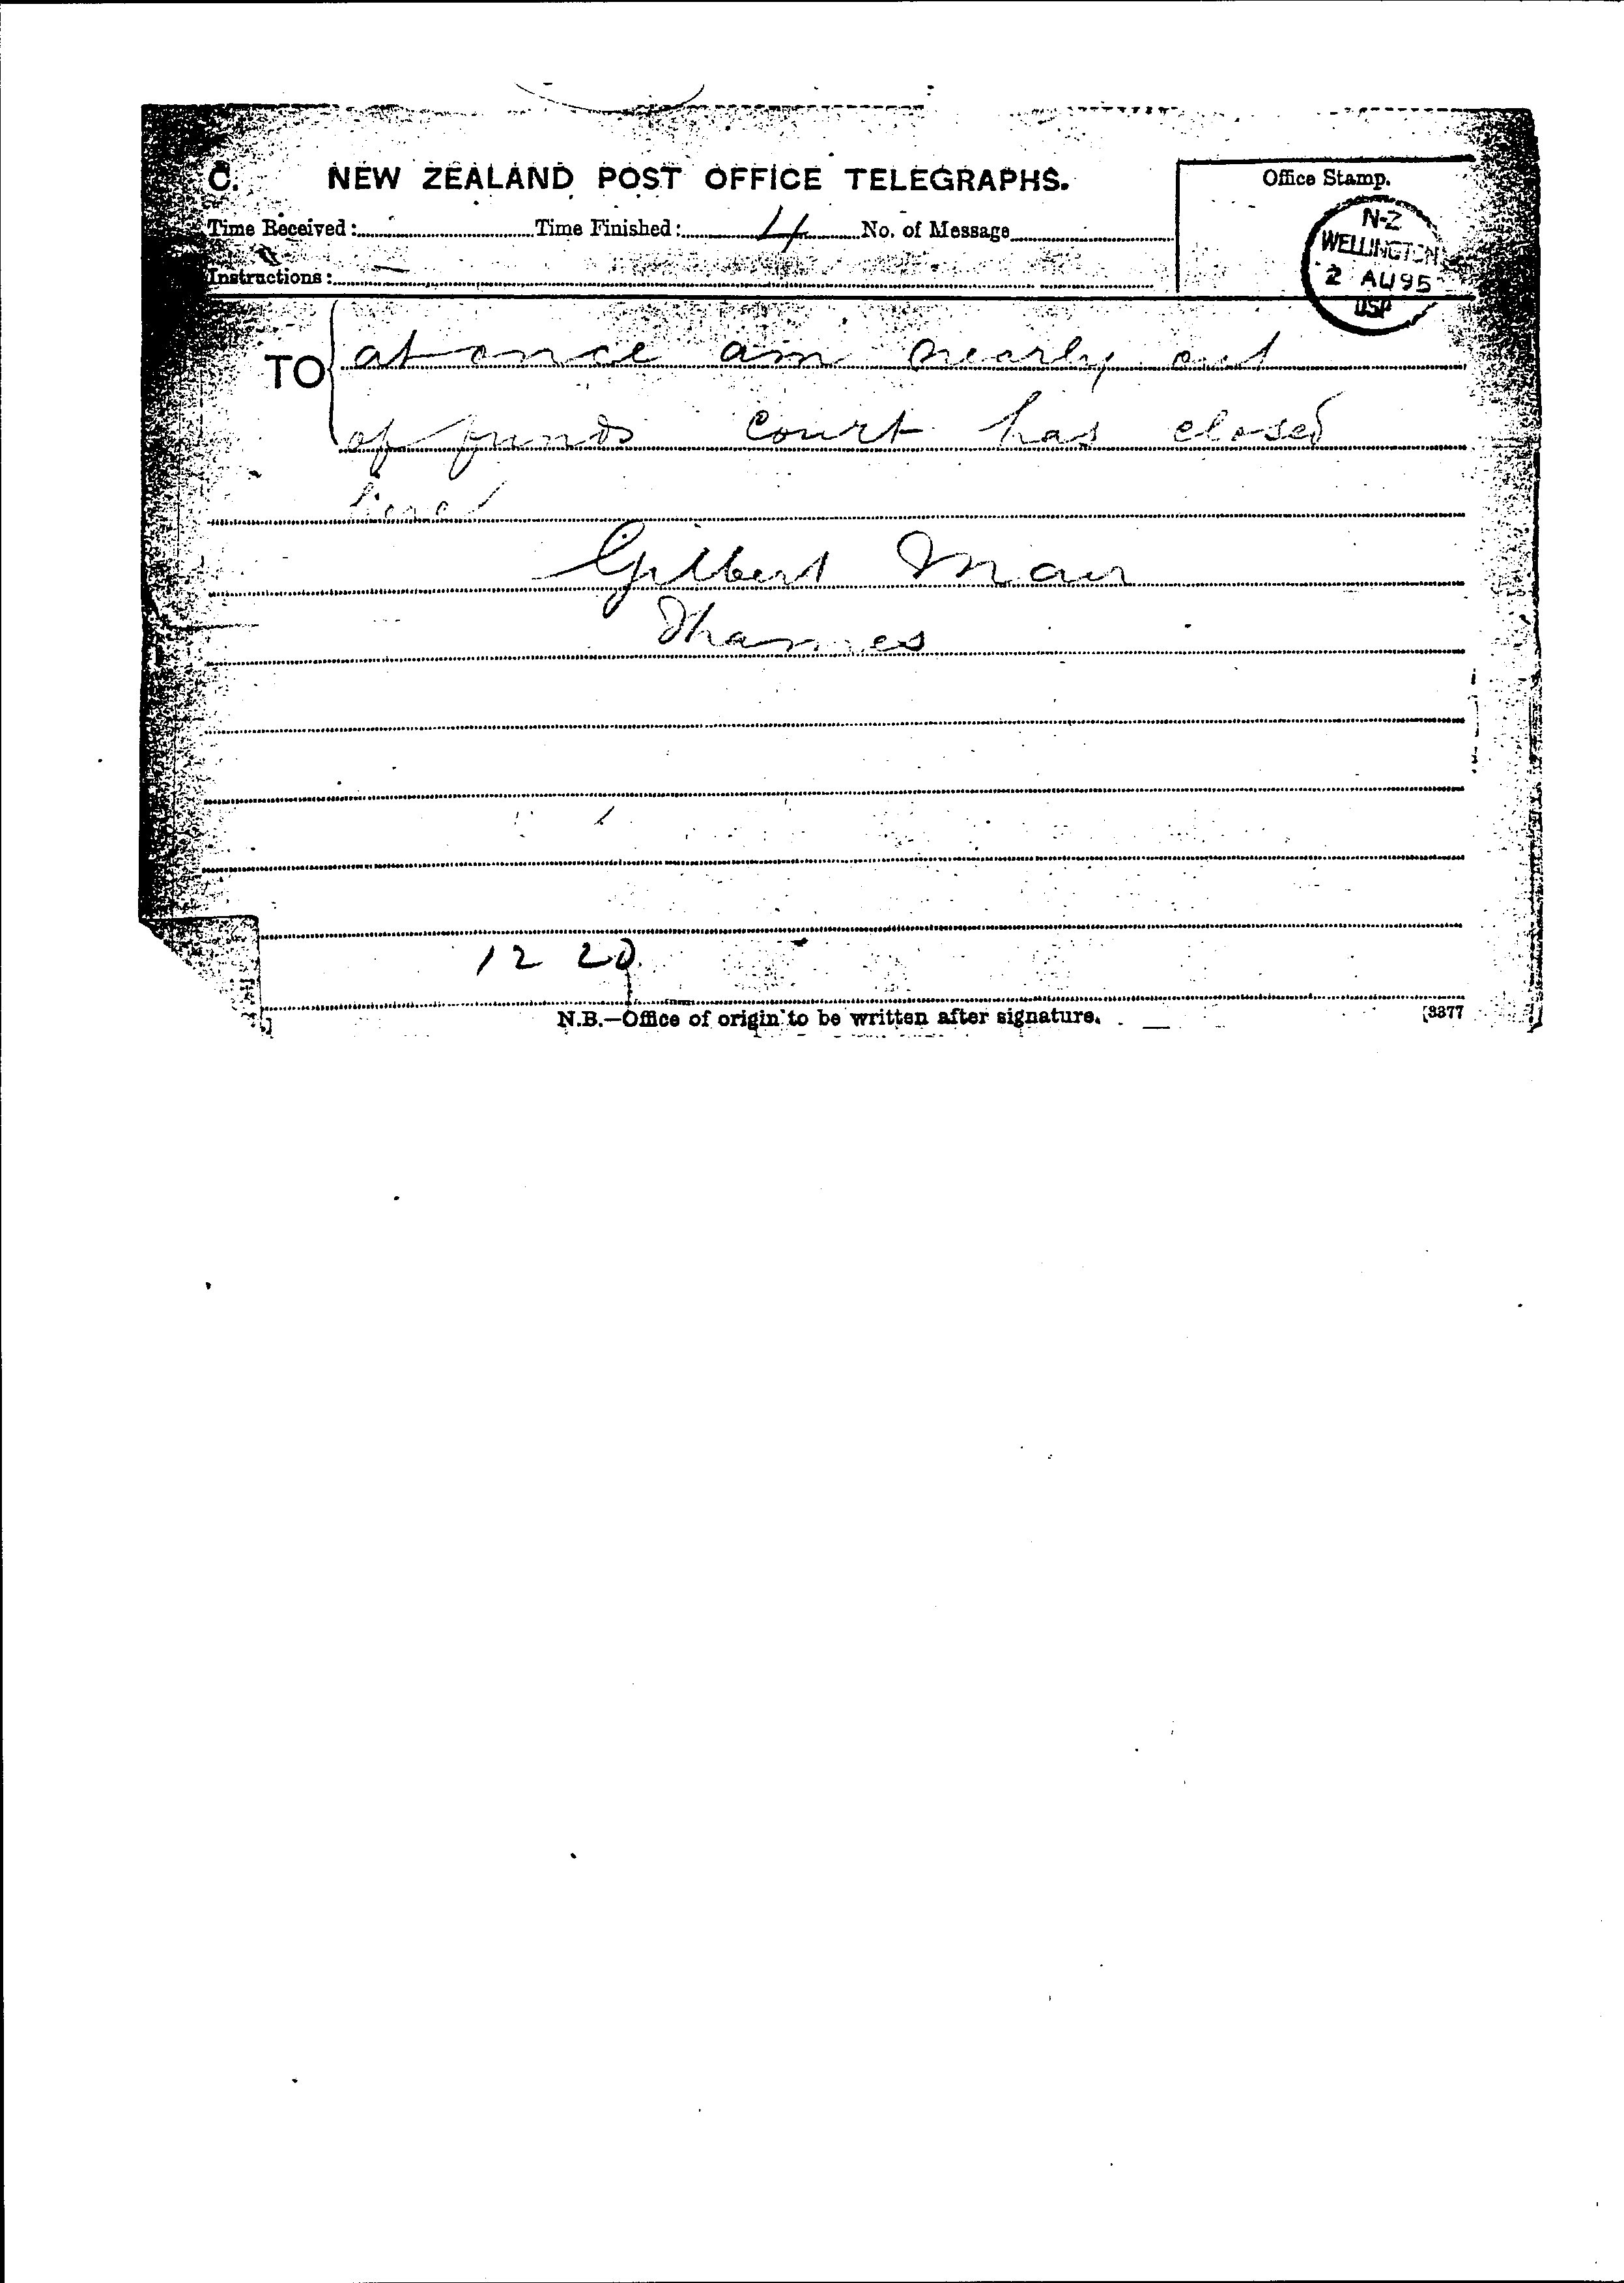 C. NEW ZEALAND POST OFFICE TELEGRAPHS.
Office Stamp.
N-Z
WELLINGTON
2 AU 95
Time Received: Time Finished: 4 No. of Message
Instructions:
TO at once am nearly out
of funds Court has closed
here
Gilbert Mair
Thames
12 20
N.B.—Office of origin to be written after signature. [3377